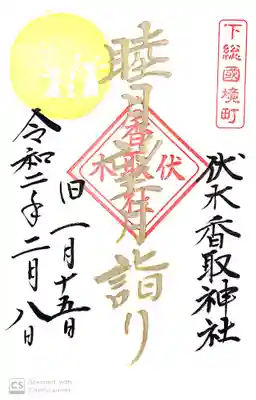 下総國境町
伏木香取神社
睦月満月詣り
香取社
伏木
旧一月十五日
令和二年二月八日
CS Scanned with CamScanner